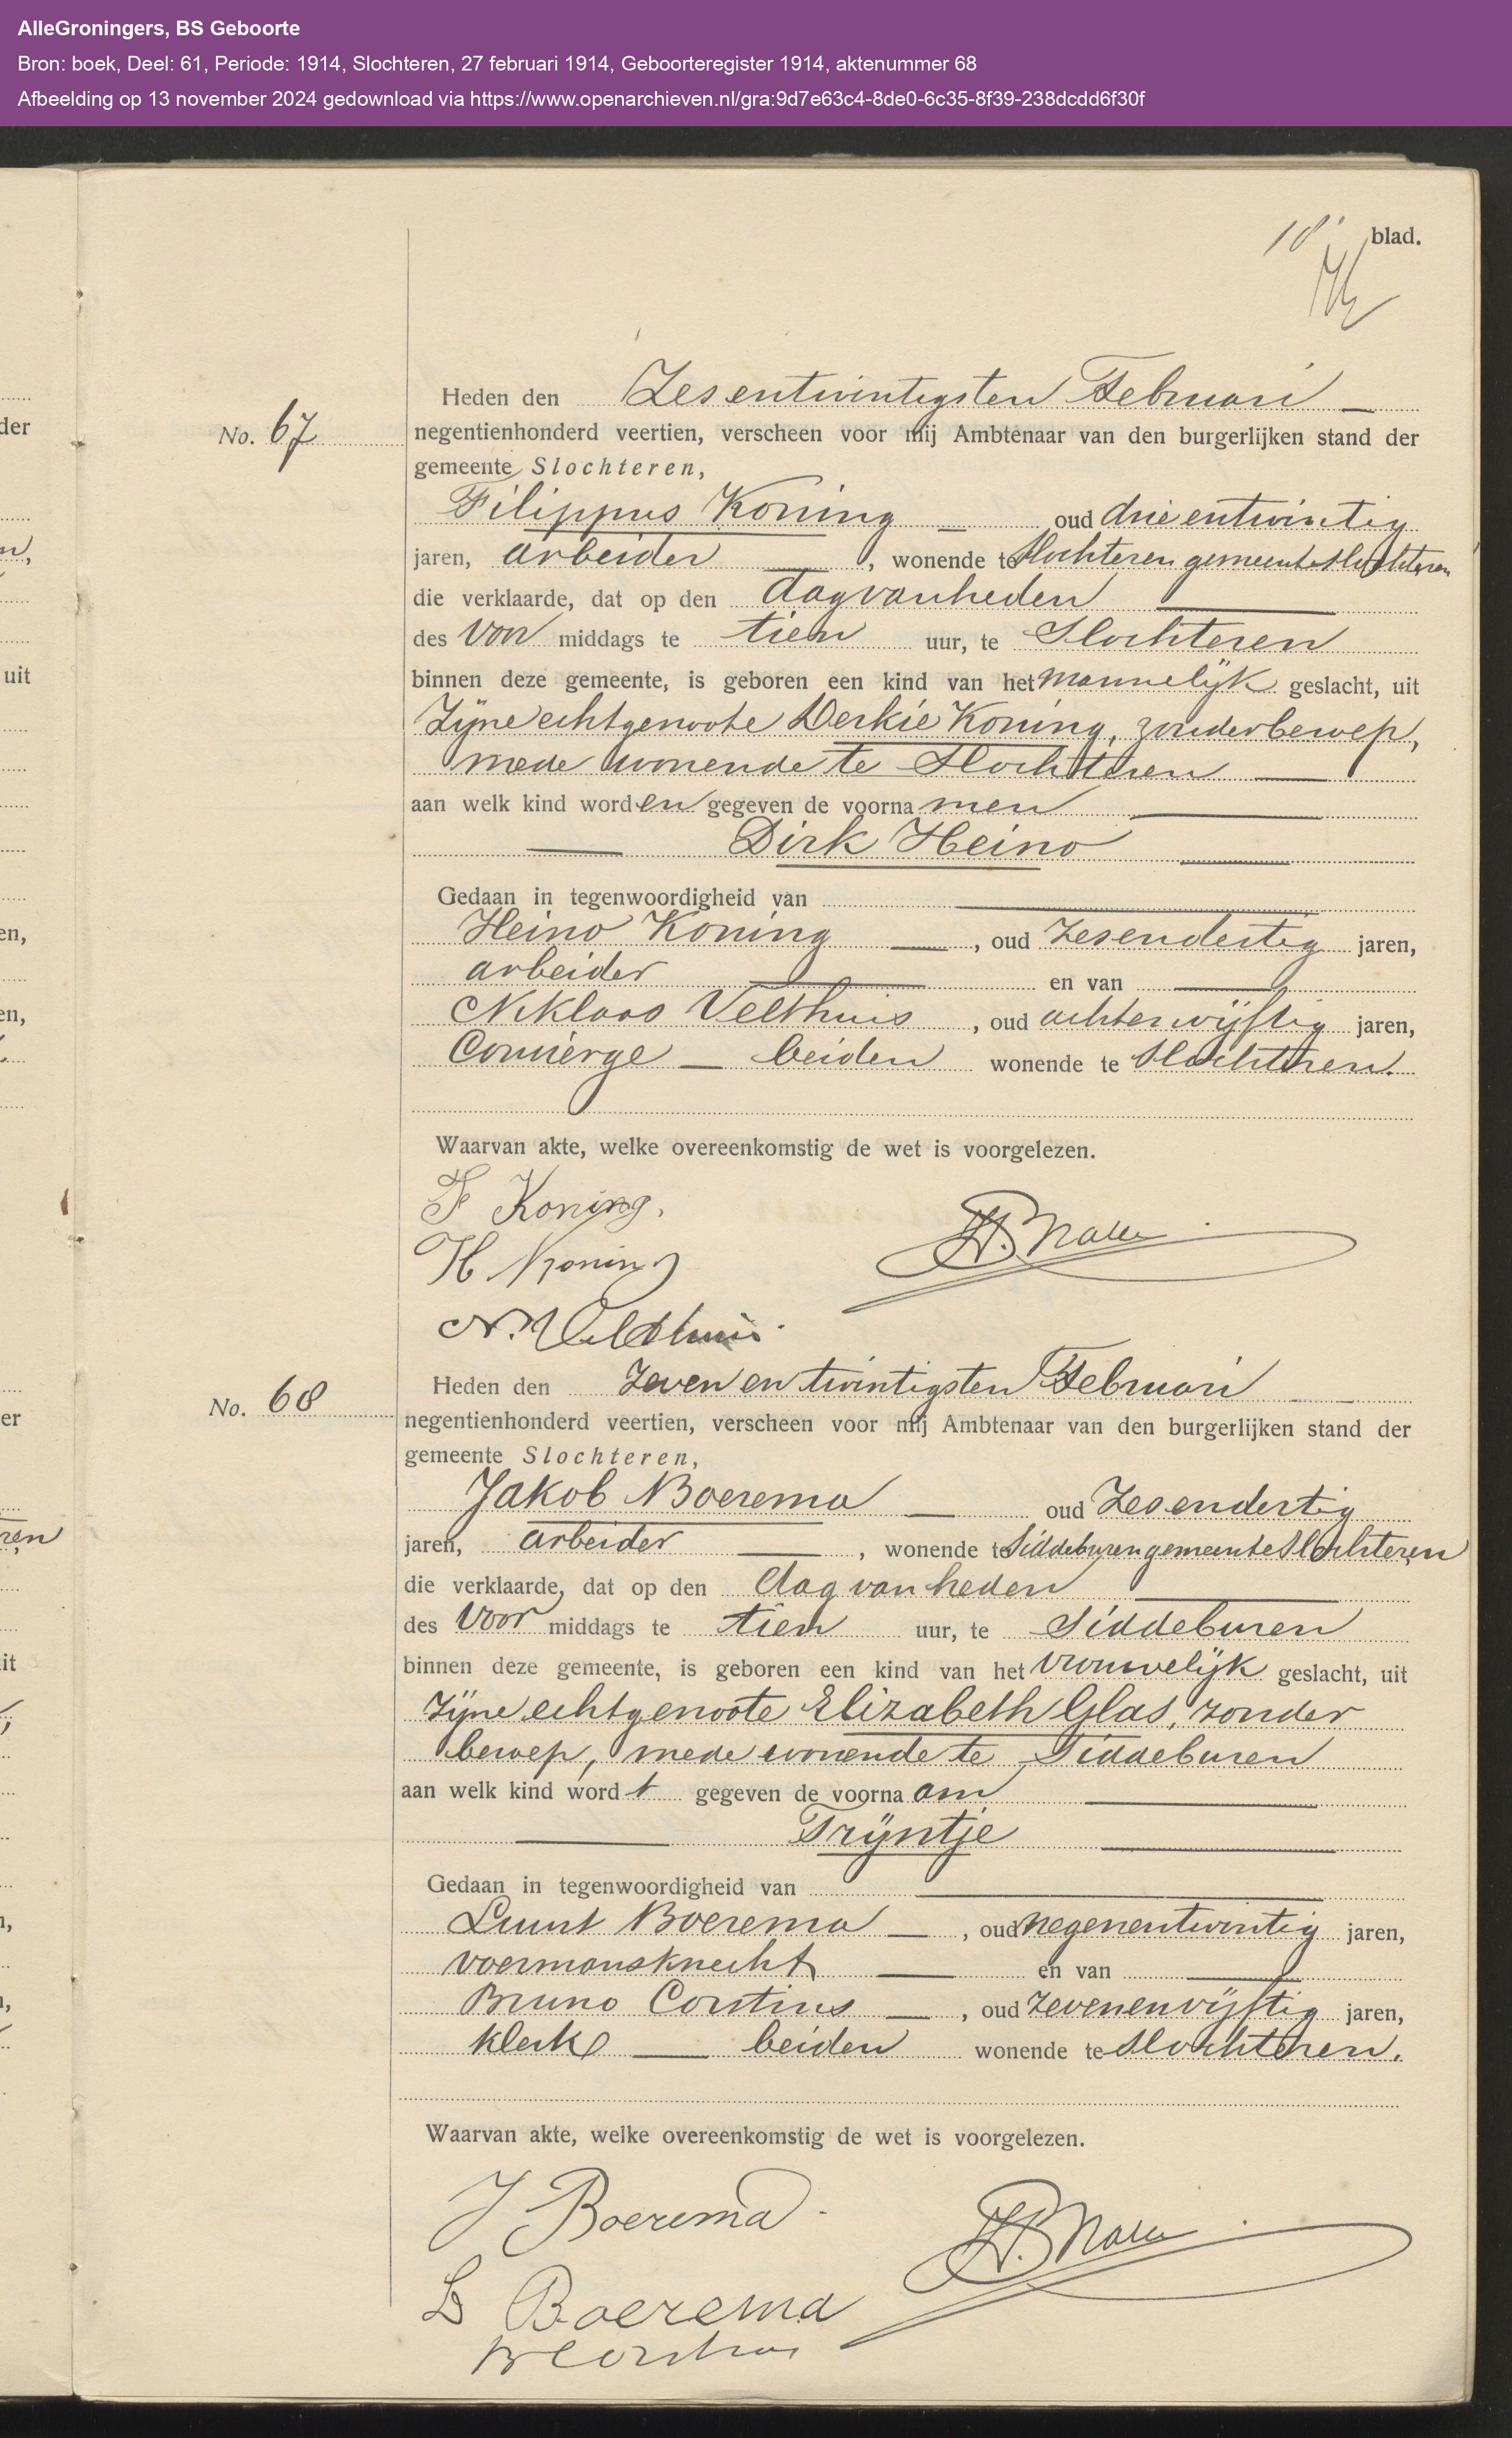 AlleGroningers, BS Geboorte
Bron: boek, Deel: 61, Periode: 1914, Slochteren, 27 februari 1914, Geboorteregister 1914, aktenummer 68
Afbeelding op 13 november 2024 gedownload via https://www.openarchieven.nl/gra:9d7e63c4-8de0-6c35-8f39-238dcdd6f30f
18e blad.
Heden den Zesentwintigsten Februari
No. 67
negentienhonderd veertien, verscheen voor mij Ambtenaar van den burgerlijken stand der
gemeente Slochteren,
Filippus Koning oud drieentwintig
jaren, arbeider, wonende te Slochteren gemeente Slochteren
die verklaarde, dat op den dag van heden
des Voor middags te tien uur, te Slochteren
binnen deze gemeente, is geboren een kind van het mannelijk geslacht, uit
Zijne echtgenoote Derkie Koning, zonder beroep,
mede wonende te Slochteren
aan welk kind worden gegeven de voornamen
Dirk Heino
Gedaan in tegenwoordigheid van
Heino Koning, oud Zesendertig jaren,
arbeider en van
Niklaas Velthuis, oud achtenvijftig jaren,
Concierge beiden wonende te Slochteren.
Waarvan akte, welke overeenkomstig de wet is voorgelezen.
F Koning.
H Koning
N. Veldthuis.
No. 68
Heden den Zevenentwintigsten Februari
negentienhonderd veertien, verscheen voor mij Ambtenaar van den burgerlijken stand der
gemeente Slochteren,
Jakob Boerema oud Zesendertig
jaren, arbeider, wonende te Siddeburen gemeente Slochteren
die verklaarde, dat op den dag van heden
des Voor middags te tien uur, te Siddeburen
binnen deze gemeente, is geboren een kind van het Vrouwelijk geslacht, uit
Zijne echtgenoote Elizabeth Glas, zonder
beroep, mede wonende te Siddeburen
aan welk kind wordt gegeven de voornaam
Trijntje
Gedaan in tegenwoordigheid van
Luurt Boerema, oud negenentwintig jaren,
voermansknecht en van
Bruno Corstius, oud Zevenenvijftig jaren,
klerk beiden wonende te Slochteren.
Waarvan akte, welke overeenkomstig de wet is voorgelezen.
J Boerema
L Boerema
B Corstius